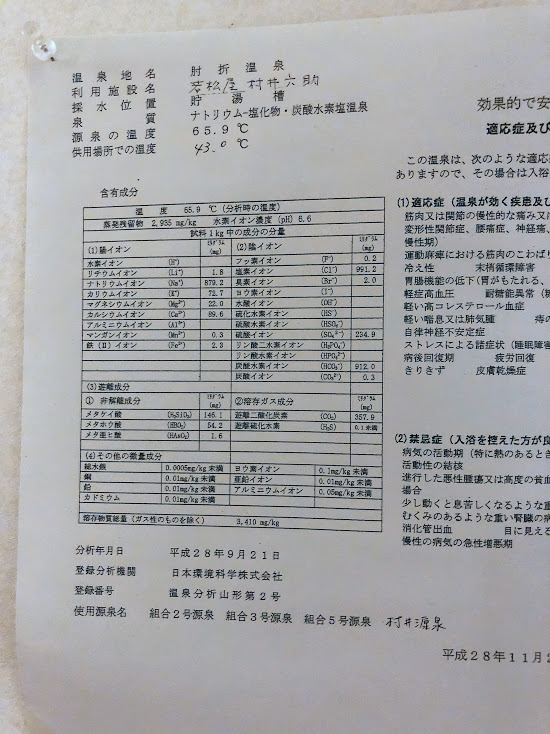 温泉地名 肘折温泉
利用施設名 若松屋 村井六助
採水位置 貯湯槽
泉質 ナトリウム-塩化物・炭酸水素塩温泉
源泉の温度 65.9 ℃
供用場所での温度 43.0 ℃
含有成分
温度 65.9 ℃ (分析時の温度)
蒸発残留物 2,935 mg/kg 水素イオン濃度 (pH) 6.6
試料1kg中の成分の分量
(1)陽イオン ミリグラム(mg) (2)陰イオン ミリグラム(mg)
水素イオン (H⁺) フッ素イオン (F⁻) 0.2
リチウムイオン (Li⁺) 1.8 塩素イオン (Cl⁻) 991.2
ナトリウムイオン (Na⁺) 879.2 臭素イオン (Br⁻) 2.0
カリウムイオン (K⁺) 72.7 ヨウ素イオン (I⁻)
マグネシウムイオン (Mg²⁺) 22.0 水酸イオン (OH⁻)
カルシウムイオン (Ca²⁺) 89.6 硫化水素イオン (HS⁻)
アルミニウムイオン (Al³⁺) 硫酸水素イオン (HSO₄⁻)
マンガンイオン (Mn²⁺) 0.3 硫酸イオン (SO₄²⁻) 234.9
鉄(Ⅱ)イオン (Fe²⁺) 2.3 リン酸二水素イオン (H₂PO₄⁻)
リン酸水素イオン (HPO₄²⁻)
炭酸水素イオン (HCO₃⁻) 912.0
炭酸イオン (CO₃²⁻) 0.3
(3)遊離成分
① 非解離成分 ミリグラム(mg) ②溶存ガス成分 ミリグラム(mg)
メタケイ酸 (H₂SiO₃) 146.1 遊離二酸化炭素 (CO₂) 357.9
メタホウ酸 (HBO₂) 54.2 遊離硫化水素 (H₂S) 0.1未満
メタ亜ヒ酸 (HAsO₂) 1.6
(4)その他の微量成分
総水銀 0.0005mg/kg未満 ヨウ素イオン 0.1mg/kg未満
銅 0.01mg/kg未満 亜鉛イオン 0.01mg/kg未満
鉛 0.01mg/kg未満 アルミニウムイオン 0.05mg/kg未満
カドミウム 0.01mg/kg未満
溶存物質総量(ガス性のものを除く) 3,410 mg/kg
分析年月日 平成28年9月21日
登録分析機関 日本環境科学株式会社
登録番号 温泉分析山形第2号
使用源泉名 組合2号源泉 組合3号源泉 組合5号源泉 村井源泉
効果的で安
適応症及び
この温泉は、次のような適応
ありますので、その場合は入浴
(1)適応症(温泉が効く疾患及び
筋肉又は関節の慢性的な痛み又
変形性関節症、腰痛症、神経痛、
慢性期)
運動麻痺における筋肉のこわばり
冷え性 末梢循環障害
胃腸機能の低下(胃がもたれる、
軽症高血圧 耐糖能異常(糖
軽い高コレステロール血症
軽い喘息又は肺気腫 痔の
自律神経不安定症
ストレスによる諸症状(睡眠障害
病後回復期 疲労回復
きりきず 皮膚乾燥症
(2)禁忌症(入浴を控えた方が良
病気の活動期(特に熱のあるとき
活動性の結核
進行した悪性腫瘍又は高度の貧血
場合
少し動くと息苦しくなるような重
むくみのあるような重い腎臓の病
消化管出血 目に見える
慢性の病気の急性増悪期
平成28年11月2